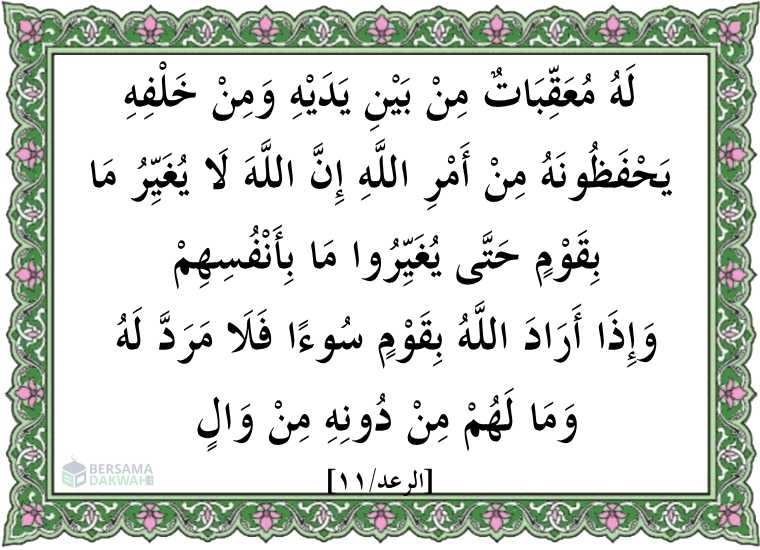 لَهُ مُعَقِّبَاتٌ مِنْ بَيْنِ يَدَيْهِ وَمِنْ خَلْفِهِ
يَحْفَظُونَهُ مِنْ أَمْرِ اللَّهِ إِنَّ اللَّهَ لَا يُغَيِّرُ مَا
بِقَوْمٍ حَتَّى يُغَيِّرُوا مَا بِأَنْفُسِهِمْ
وَإِذَا أَرَادَ اللَّهُ بِقَوْمٍ سُوءًا فَلَا مَرَدَّ لَهُ
وَمَا لَهُمْ مِنْ دُونِهِ مِنْ وَالٍ
[الرعد/١١]
BERSAMA
DAKWAH